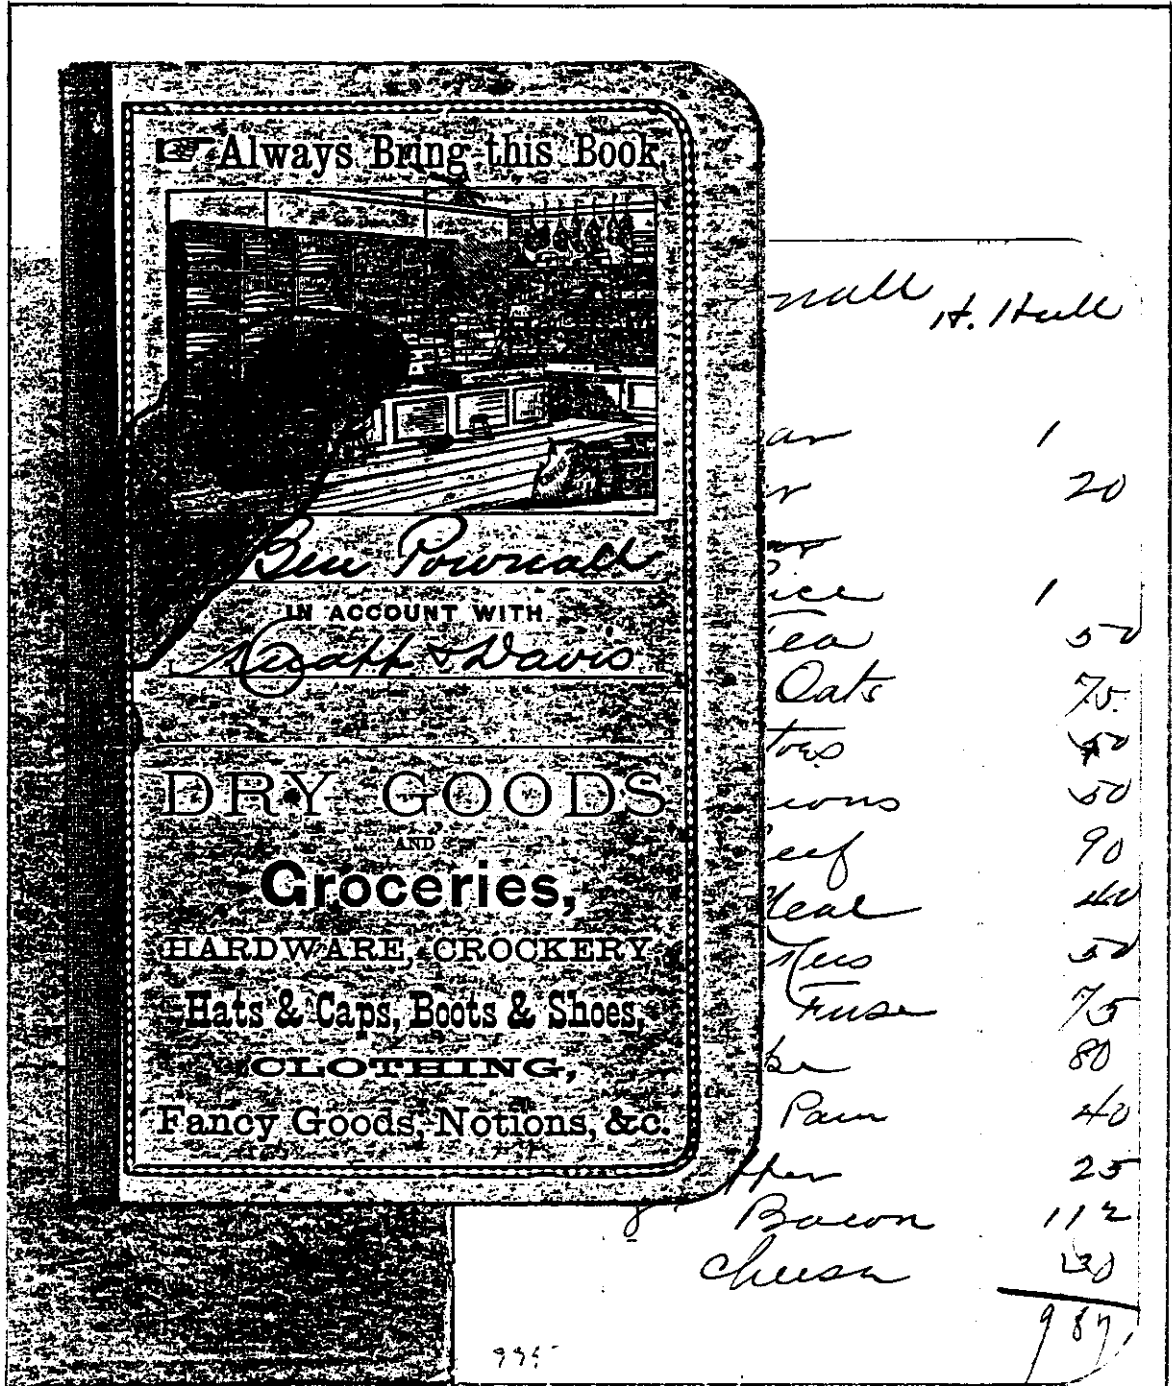 Always Bring this Book.
Ben Pownall
IN ACCOUNT WITH
& Davis
DRY GOODS
AND
Groceries,
HARDWARE, CROCKERY
Hats & Caps, Boots & Shoes,
CLOTHING,
Fancy Goods, Notions, &c.
nall H. Hull
ar 1
r 20
ice 1
Tea 50
Oats 75
toes 50
ions 50
eef 90
Meal 40
50
Fuse 75
ke 80
Pain 40
pper 25
Bacon 112
Cheese
987
995